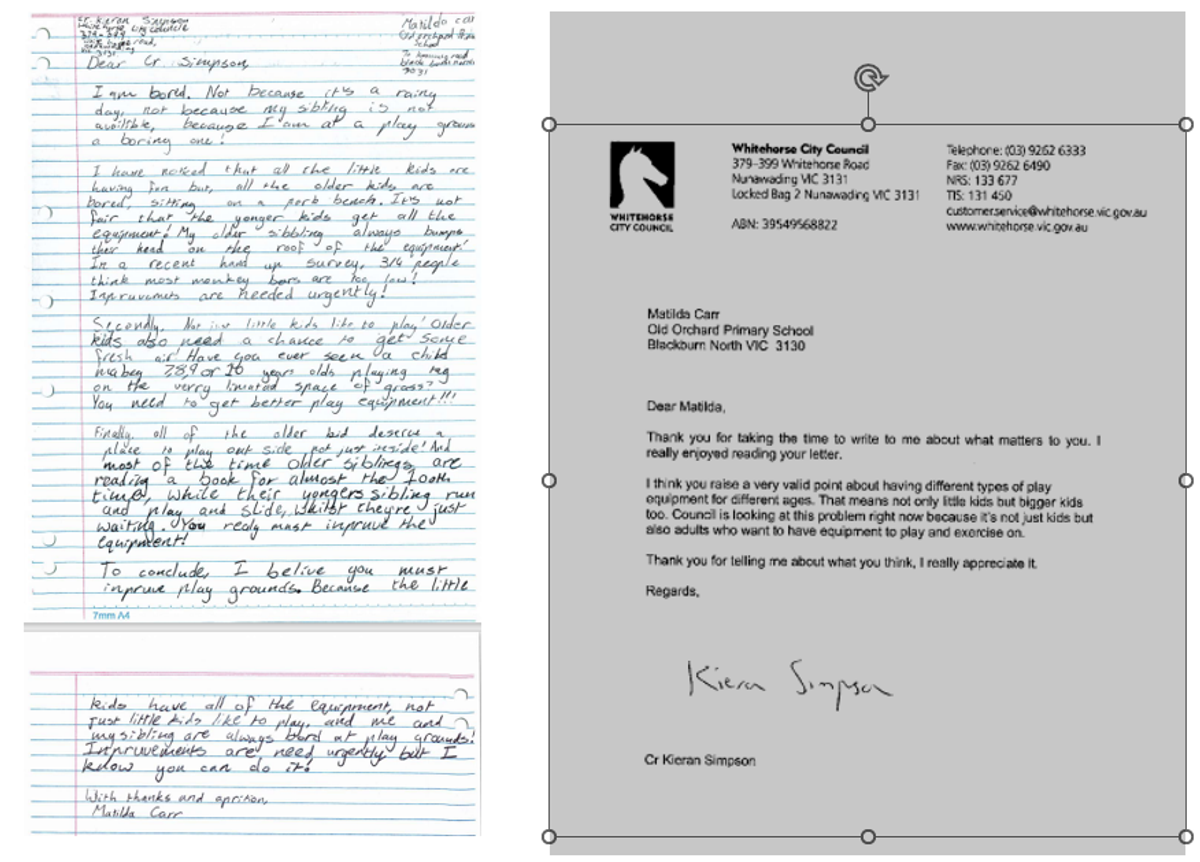 Cr Kieran Simpson
Whitehorse City Councle
379-399
Nunawading
Vic 3131
Matilda Carr
Old orchard
School
Dear Cr Simpson,
I am bored. Not because it's a rainy
day, not because my sibling is not
availible, because I am at a play groun
a boring one!
I have noticed that all the little kids are
having fun but, all the older kids are
bored, sitting on a park bench. It's not
fair that the yonger kids get all the
equipment! My older sibbling always bumps
their head on the roof of the equipment!
In a recent hand up survey, 3/4 people
think most monkey bars are too low!
Inpruvemets are needed urgently!
Secondly, Not just little kids like to play! Older
kids also need a chance to get some
fresh air! Have you ever seen a child
mabey 7,8,9 or 10 years olds playing tag
on the verry limated space of grass?
You need to get better play equipment!!!
Finally, all of the older kid deserve a
place to play out side not just inside! And
most of the time older siblings are
reading a book for almost the 100th
time, while their yongers sibling run
and play and slide, whilst theyre just
waiting. You realy must inpruve the
equipment!
To conclude, I belive you must
inpruve play grounds. Because the little
7mm A4
kids have all of the equipment, not
just little kids like to play, and me and
my sibling are always bord at play grounds!
Inpruvements are need urgently but I
know you can do it!
With thanks and aprition,
Matilda Carr
WHITEHORSE
CITY COUNCIL
Whitehorse City Council
379-399 Whitehorse Road
Nunawading VIC 3131
Locked Bag 2 Nunawading VIC 3131
ABN: 39549568822
Telephone: (03) 9262 6333
Fax: (03) 9262 6490
NRS: 133 677
TIS: 131 450
customer.service@whitehorse.vic.gov.au
www.whitehorse.vic.gov.au
Matilda Carr
Old Orchard Primary School
Blackburn North VIC 3130
Dear Matilda,
Thank you for taking the time to write to me about what matters to you. I
really enjoyed reading your letter.
I think you raise a very valid point about having different types of play
equipment for different ages. That means not only little kids but bigger kids
too. Council is looking at this problem right now because it's not just kids but
also adults who want to have equipment to play and exercise on.
Thank you for telling me about what you think, I really appreciate it.
Regards,
Kieran Simpson
Cr Kieran Simpson